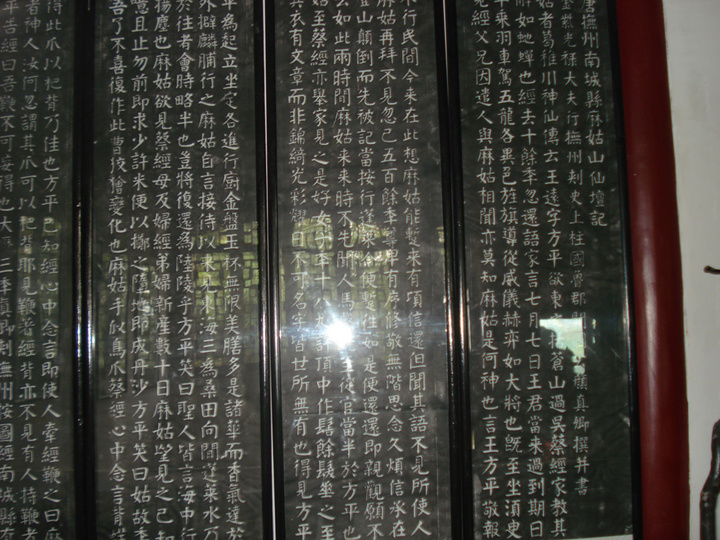 唐撫州南城縣麻姑山仙壇記
金紫光祿大夫行撫州刺史上柱國魯郡開顏真卿撰并書
姑者葛稚川神仙傳云王遠字方平欲東括蒼山過吳蔡經家教其
解如蛇蟬也經去十餘年忽還語家言七月七日王君當來過到期日
平乘羽車駕五龍各異色旌旗導從威儀赫弈如大將也既至坐須臾
見經父兄因遣人與麻姑相聞亦莫知麻姑是何神也言王方平敬報
不行民間今來在此想麻姑能暫來有頃信還但聞其語不見所使人
麻姑再拜不見忽已五百餘年尊卑有序修敬無階思念久煩信承在
登山顛倒而先被記當按行蓬萊今便暫往如是便還還即親觀願不
去如此兩時間麻姑來來時不先聞人馬至從官當半於方平也
姑至蔡經亦舉家見之是好女子年十八九許頂中作髻餘髮垂之至
其衣有文章而非錦綺光彩耀日不可名字皆世所無有也得見方平
平為起立坐定各進行廚金盤玉杯無限美膳多是諸華而香氣達於
外擗麟脯行之麻姑自言接待以來見東海三為桑田向間蓬萊水乃
於往者會時略半也豈將復還為陸陵乎方平笑曰聖人皆言海中行
揚塵也麻姑欲見蔡經母及婦經弟婦新產數十日麻姑望見之已知
噫且止勿前即求少許米便以擲之墮地即成丹沙方平笑曰姑故年
吾了不喜復作此曹狡獪變化也麻姑手似鳥爪蔡經心中念言背痒
得此爪以杷背乃佳也方平已知經心中念言即使人牽經鞭之曰麻
者神人汝何忽謂其爪可以杷背耶見鞭著經背亦不見有人持鞭者
平告經曰吾鞭不可妄得也大三年真卿刺撫州按圖經南城縣有